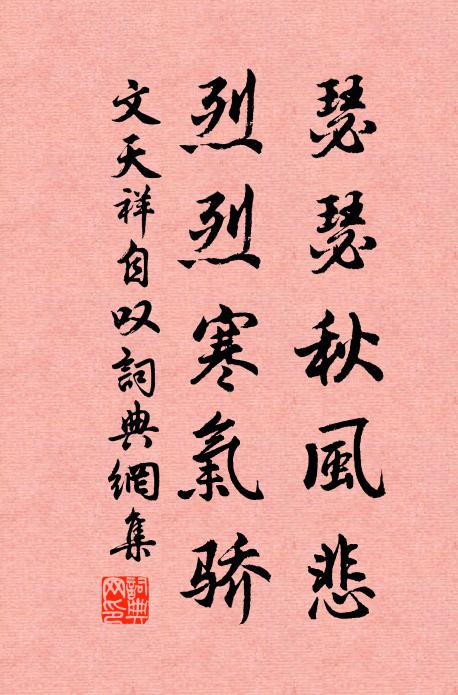 瑟瑟秋風悲
烈烈寒氣骄
文天祥自叹詞典網集
詞典网印